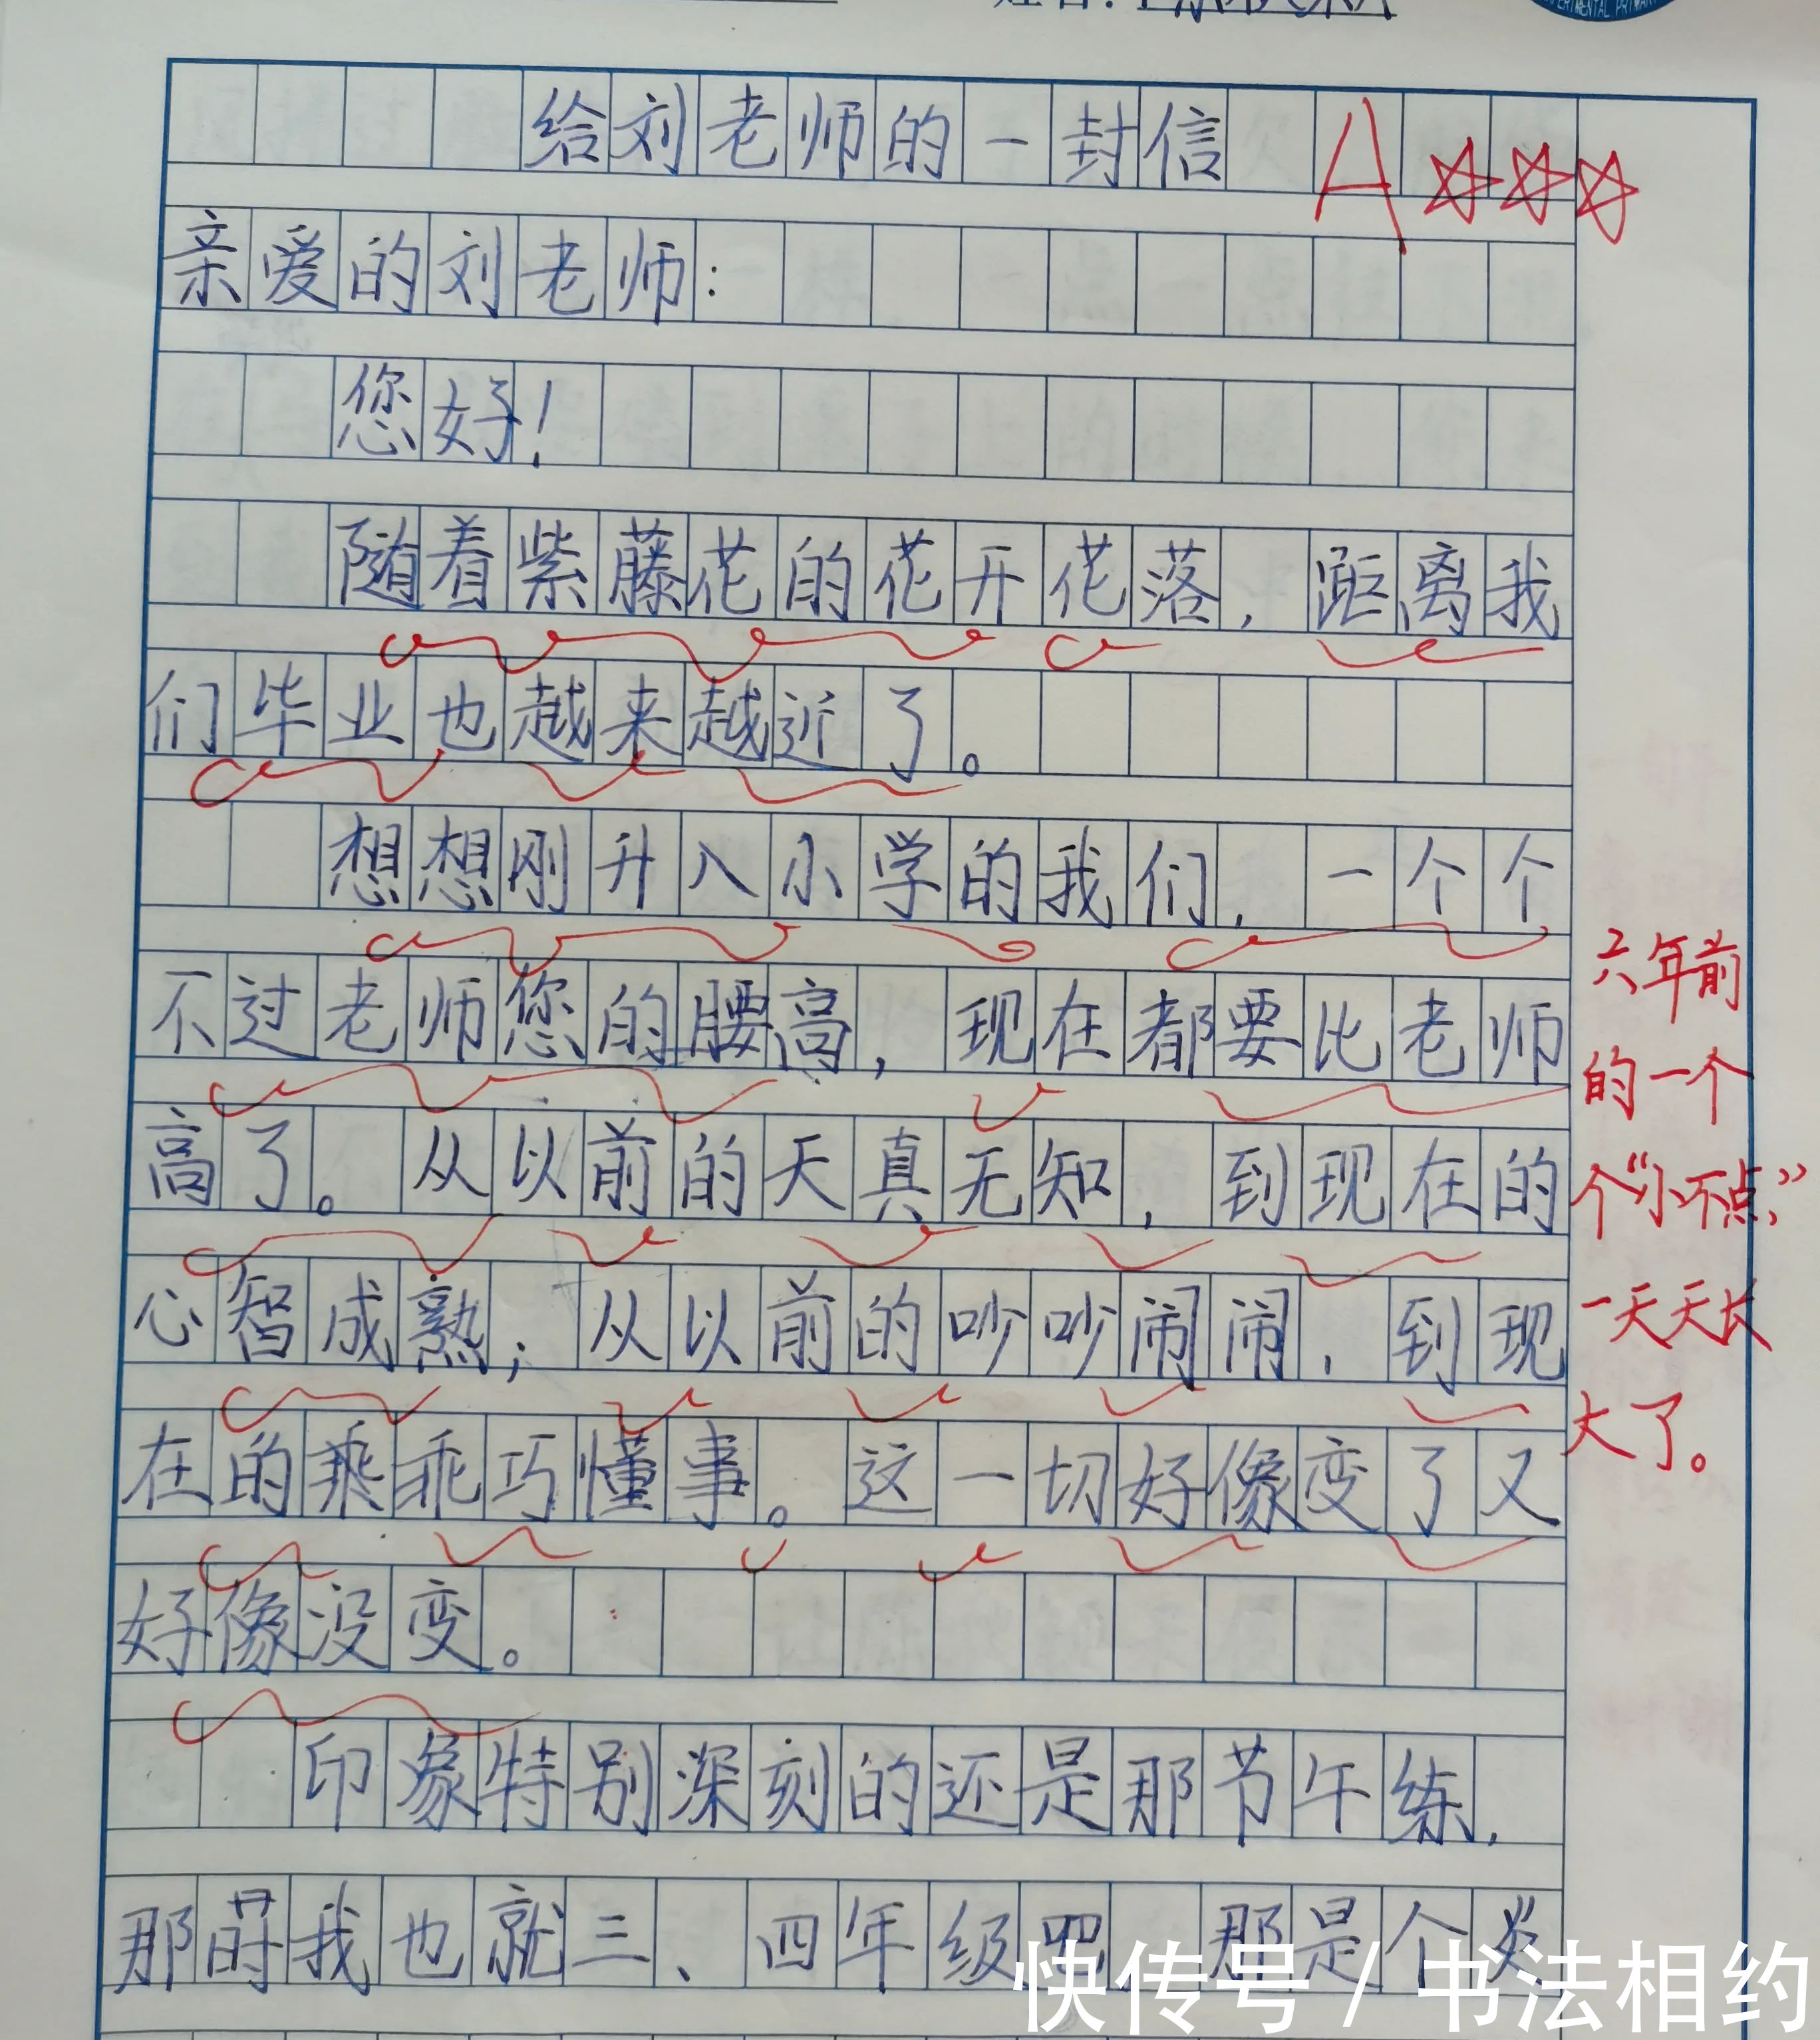 给刘老师的一封信 A
亲爱的刘老师：
您好！
随着紫藤花的花开花落，距离我
们毕业也越来越近了。
想想刚升入小学的我们，一个个
不过老师您的腰高，现在都要比老师
高了。从以前的天真无知，到现在的
心智成熟；从以前的吵吵闹闹，到现
在的乖乖巧懂事。这一切好像变了又
好像没变。
印象特别深刻的还是那节午练，
那时我也就三、四年级吧，那是个炎
六年前
的一个
个“小不点”
一天天长
大了。
快传号 / 书法相约